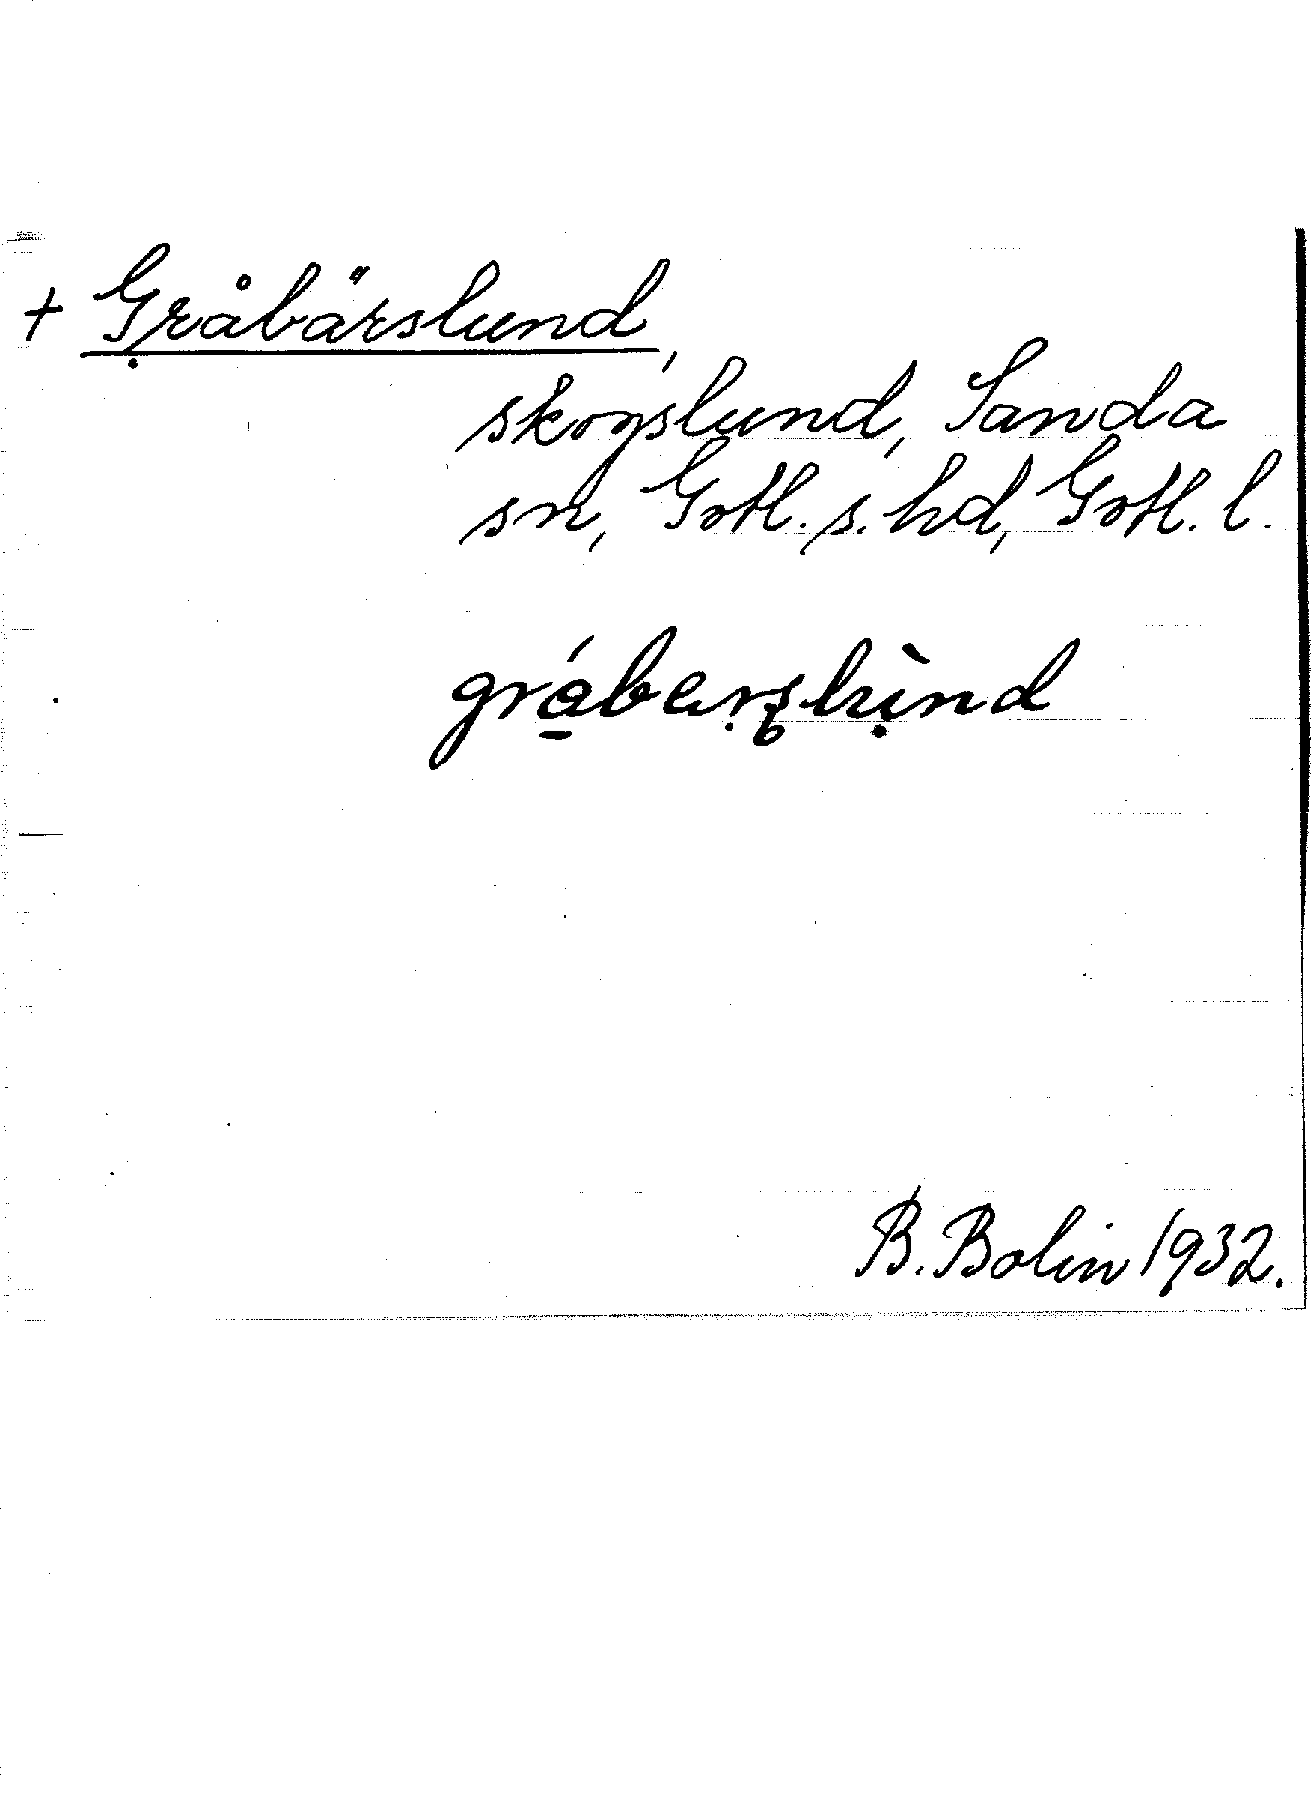 + Gråbärslund,
skogslund, Sanda
sn, Gotl. s. hd, Gotl. l.
gråbarslund
B. Bolin 1932.